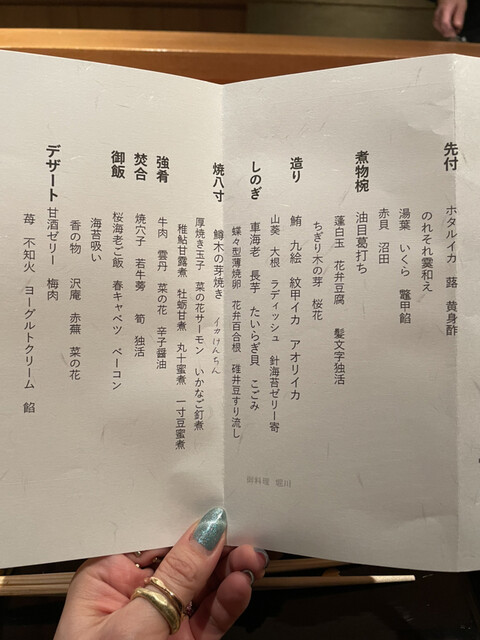 先付
ホタルイカ　蕗　黄身酢
のれそれ羹和え
湯葉　いくら　鼈甲餡
赤貝　沼田
煮物椀
油目葛打ち
蓬白玉　花弁豆腐　髪文字独活
ちぎり木の芽　桜花
造り
鮪　九絵　紋甲イカ　アオリイカ
山葵　大根　ラディッシュ　針海苔ゼリー寄
しのぎ
車海老　長芋　たいらぎ貝　こごみ
蝶々型薄焼卵　花弁百合根　碓井豆すり流し
焼八寸
鱒木の芽焼き　イカけんちん
厚焼き玉子　菜の花サーモン　いかなご釘煮
稚鮎甘露煮　牡蛎甘煮　丸十蜜煮　一寸豆蜜煮
強肴
牛肉　雲丹　菜の花　辛子醤油
焚合
焼穴子　若牛蒡　筍　独活
御飯
桜海老ご飯　春キャベツ　ベーコン
海苔吸い
香の物　沢庵　赤蕪　菜の花
デザート
甘酒ゼリー　梅肉
苺　不知火　ヨーグルトクリーム　餡
御料理　堀川